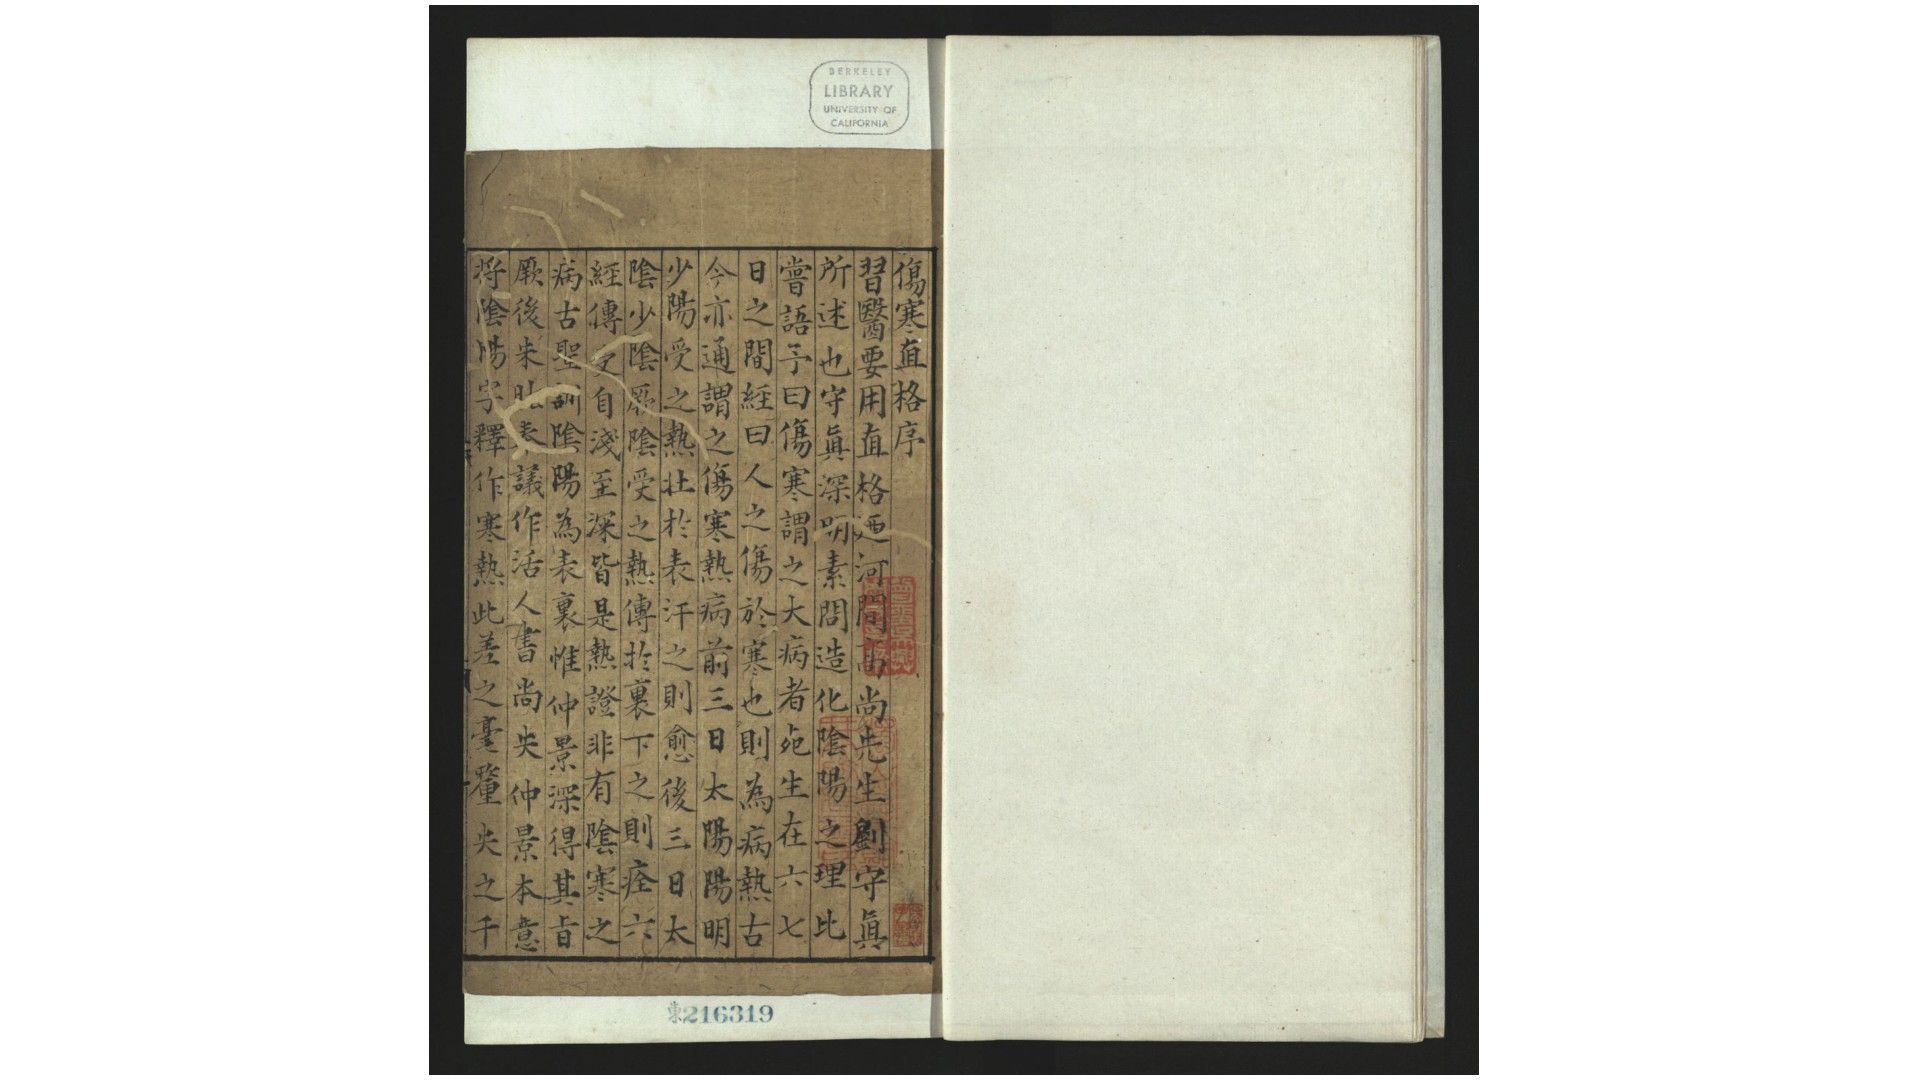 BERKELEY
LIBRARY
UNIVERSITY OF
CALIFORNIA
傷寒直格序
習醫要用直格廼河間高尚先生劉守眞
所述也守眞深明素問造化陰陽之理比
嘗語予曰傷寒謂之大病者死生在六七
日之間經曰人之傷於寒也則為病熱古
今亦通謂之傷寒熱病前三日太陽陽明
少陽受之熱壯於表汗之則愈後三日太
陰少陰厥陰受之熱傳於裏下之則痊六
經傳受自淺至深皆是熱證非有陰寒之
病古聖訓陰陽為表裏惟仲景深得其旨
厥後朱肱表議作活人書尚失仲景本意
将陰陽字釋作寒熱此差之毫釐失之千
東216319